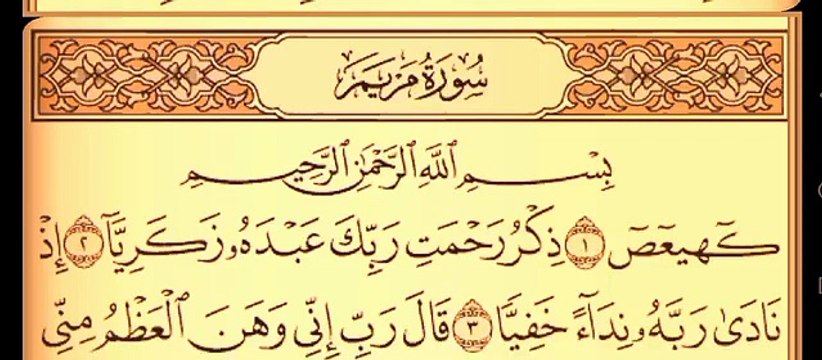 سُورَةُ مَرْيَمَ
بِسْمِ ٱللَّهِ ٱلرَّحْمَٰنِ ٱلرَّحِيمِ
كٓهيعٓصٓ ١ ذِكْرُ رَحْمَتِ رَبِّكَ عَبْدَهُۥ زَكَرِيَّآ ٢ إِذْ
نَادَىٰ رَبَّهُۥ نِدَآءً خَفِيًّا ٣ قَالَ رَبِّ إِنِّى وَهَنَ ٱلْعَظْمُ مِنِّى